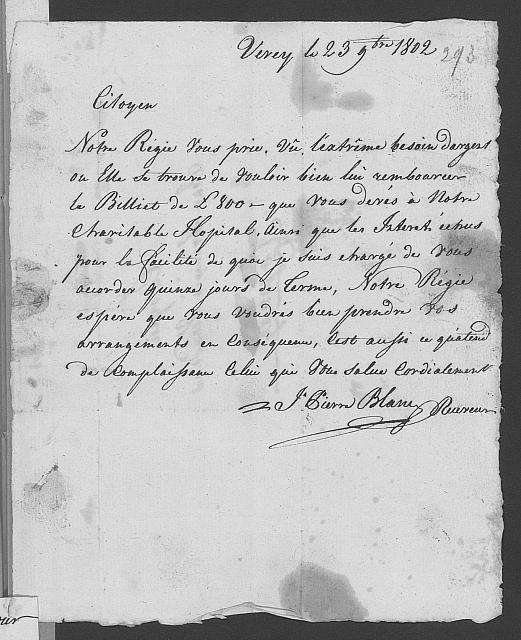 Vevey le 23 9bre 1802
293
Citoyen
Notre Régie Vous prie, Vû l'extrême besoin d'argent
ou Elle se trouve de Vouloir bien lui rembourcer
le Billiet de L 800 - que vous devés à Notre
Charitable Hopital, Ainsi que les Interets échus
pour la facilité de quoi je suis chargé de Vous
accorder Quinze jours de Terme, Notre Régie
espère que vous voudrés bien prendre vos
arrangements en Conséquence, C'est aussi ce qu'atend
de Complaisance Celui qui Vous salue Cordialement
Jn Pierre Blanc Receveur